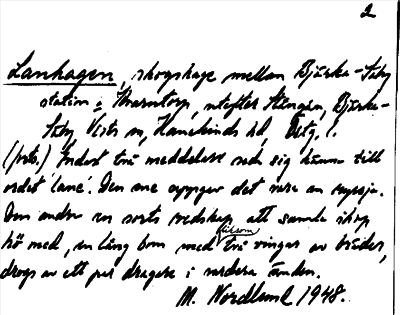 2
Lanhagen, skogshage mellan Bjärka-Säby
station o. Skarntorp, utefter Stången, Bjärka-
Säby, Vists sn, Hanekinds hd, Östg.
(forts.) Endast två meddelare sade sig känna till
ordet 'lane'. Den ene uppgav det vara en
Den andre en sorts redskap att samla ihop
hö med, en lång bom med liksom två vingar av bräder,
drogs av ett par dragare i vardera änden.
M. Nordlund 1948.